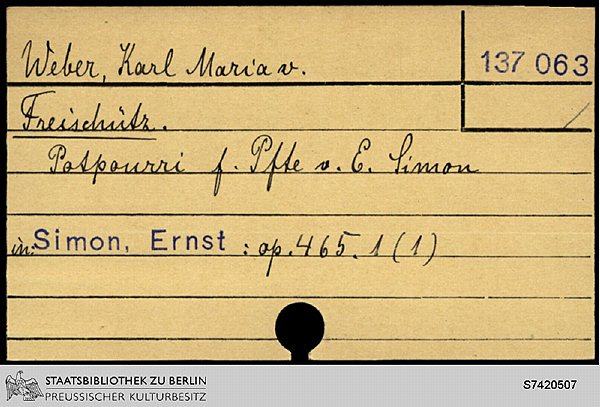 Weber, Karl Maria v.
137 063
Freischütz.
Potpourri f. Pfte v. E. Simon
in: Simon, Ernst : op. 465. 1 (1)
STAATSBIBLIOTHEK ZU BERLIN
PREUSSISCHER KULTURBESITZ
S7420507